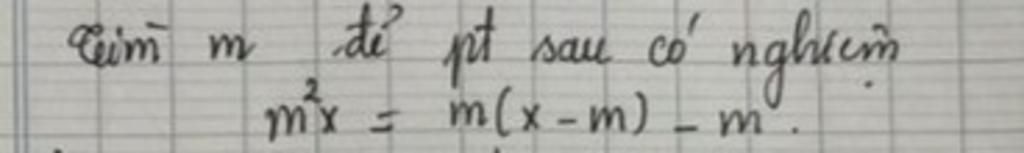 Tìm m để pt sau có nghiệm
m²x = m(x - m) - m.